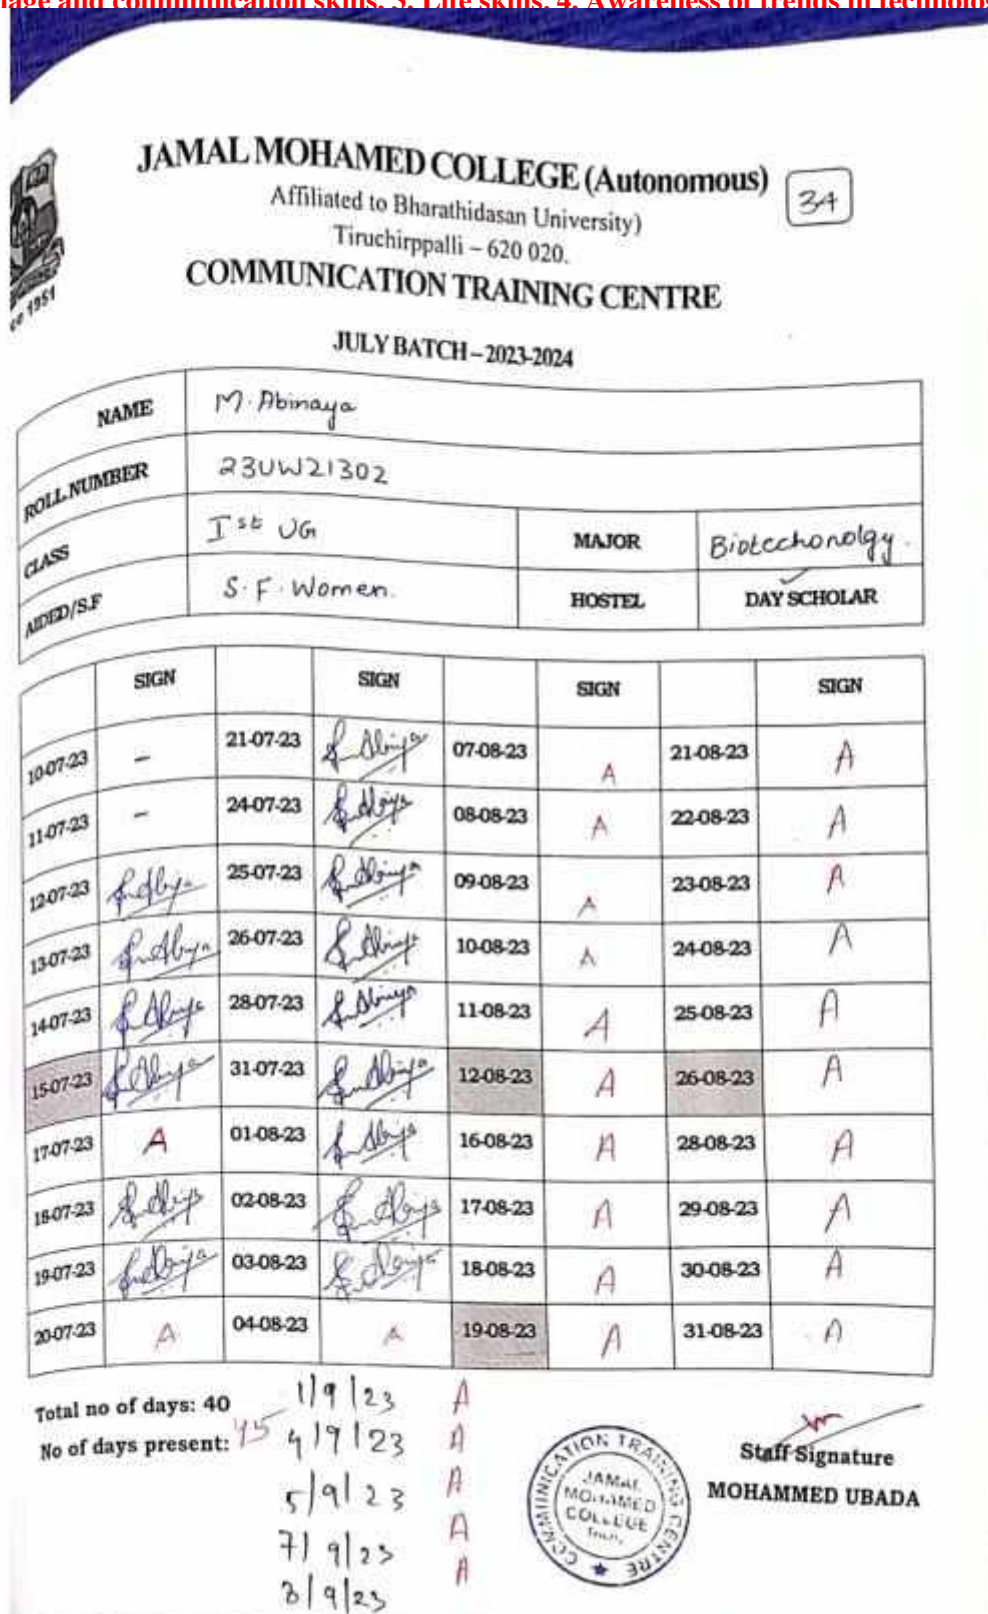 age and communication skills. 3. Life skills. 4. Awareness of trends in technolo
JAMAL MOHAMED COLLEGE (Autonomous)
34
Affiliated to Bharathidasan University)
Tiruchirppalli – 620 020.
COMMUNICATION TRAINING CENTRE
1951
JULY BATCH – 2023-2024
NAME M. Abinaya
ROLL NUMBER 23UW21302
CLASS Ist UG MAJOR Biotechonolgy.
AIDED/S.F S.F. Women. HOSTEL DAY SCHOLAR
SIGN SIGN SIGN SIGN
10-07-23 – 21-07-23 07-08-23 A 21-08-23 A
11-07-23 – 24-07-23 08-08-23 A 22-08-23 A
12-07-23 25-07-23 09-08-23 A 23-08-23 A
13-07-23 26-07-23 10-08-23 A 24-08-23 A
14-07-23 28-07-23 11-08-23 A 25-08-23 A
15-07-23 31-07-23 12-08-23 A 26-08-23 A
17-07-23 A 01-08-23 16-08-23 A 28-08-23 A
18-07-23 02-08-23 17-08-23 A 29-08-23 A
19-07-23 03-08-23 18-08-23 A 30-08-23 A
20-07-23 A 04-08-23 A 19-08-23 A 31-08-23 A
Total no of days: 40 1/9/23 A
No of days present: 4/9/23 A
5/9/23 A
7/9/23 A
8/9/23 A
COMMUNICATION TRAINING CENTRE
JAMAL
MOHAMED
COLLEGE
Staff Signature
MOHAMMED UBADA